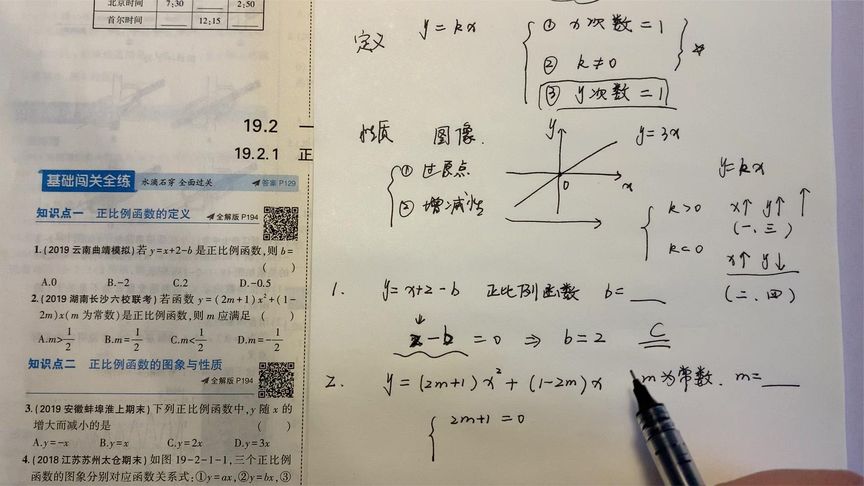 北京时间 7:30 2:50
首尔时间 12:15
19.2 一
19.2.1 正
基础闯关全练 水滴石穿 全面过关 答案 P129
知识点一 正比例函数的定义 全解版 P194
1.(2019云南曲靖模拟)若y=x+2-b是正比例函数,则b=
( )
A.0 B.-2 C.2 D.-0.5
2.(2019湖南长沙六校联考)若函数y=(2m+1)x²+(1-
2m)x(m为常数)是正比例函数,则m应满足 ( )
A.m>1/2 B.m=1/2 C.m<1/2 D.m=-1/2
知识点二 正比例函数的图象与性质
全解版 P194
3.(2019安徽蚌埠淮上期末)下列正比例函数中,y随x的
增大而减小的是 ( )
A.y=-x B.y=x C.y=2x D.y=3x
4.(2018江苏苏州太仓期末)如图19-2-1-1,三个正比例
函数的图象分别对应函数关系式:①y=ax,②y=bx,③
定义 y=kx
① x次数=1
② k≠0
③ y次数=1
性质 图像.
① 过原点
② 增减性
y
0
x
y=3x
y=kx
k>0 x↑ y↑ ↑
(一、三)
k<0 x↑ y↓
(二、四)
1. y=x+2-b 正比例函数 b=___
2-b=0 ⇒ b=2 C
2. y=(2m+1)x²+(1-2m)x m为常数. m=___
2m+1=0